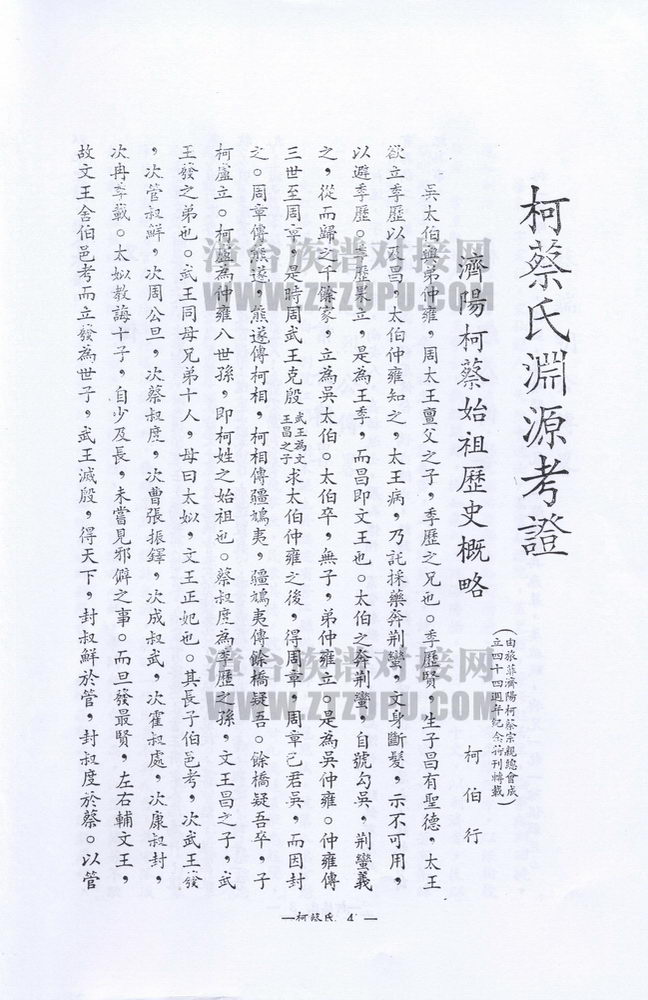 柯蔡氏淵源考證
(由旅菲濟陽柯蔡宗親總會成
立四十四週年紀念特刊轉載)
濟陽柯蔡始祖歷史概略
柯伯行
吳太伯與弟仲雍,周太王亶父之子,季歷之兄也。季歷賢,生子昌有聖德,太王
欲立季歷以及昌,太伯仲雍知之,太王病,乃託採藥奔荆蠻,文身斷髮,示不可用,
以避季歷。季歷果立,是為王季,而昌即文王也。太伯之奔荆蠻,自號勾吳,荆蠻義
之,從而歸之千餘家,立為吳太伯。太伯卒,無子,弟仲雍立。是為吳仲雍。仲雍傳
三世至周章,是時周武王克殷武王為文王昌之子求太伯仲雍之後,得周章,周章已君吳,而因封
之。周章傳熊遂,熊遂傳柯相,柯相傳疆鳩夷,疆鳩夷傳餘橋疑吾。餘橋疑吾卒,子
柯盧立。柯盧為仲雍八世孫,即柯姓之始祖也。蔡叔度為季歷之孫,文王昌之子,武
王發之弟也。武王同母兄弟十人,母曰太姒,文王正妃也。其長子伯邑考,次武王發
,次管叔鮮,次周公旦,次蔡叔度,次曹張振鐸,次成叔武,次霍叔處,次康叔封,
次冉季載。太姒教誨十子,自少及長,未嘗見邪僻之事。而旦發最賢,左右輔文王,
故文王舍伯邑考而立發為世子,武王滅殷,得天下,封叔鮮於管,封叔度於蔡。以管
—柯蔡氏 4 —
漳台族谱对接网
WWW.ZTZUPU.COM
漳台族谱对接网
WWW.ZTZUPU.COM